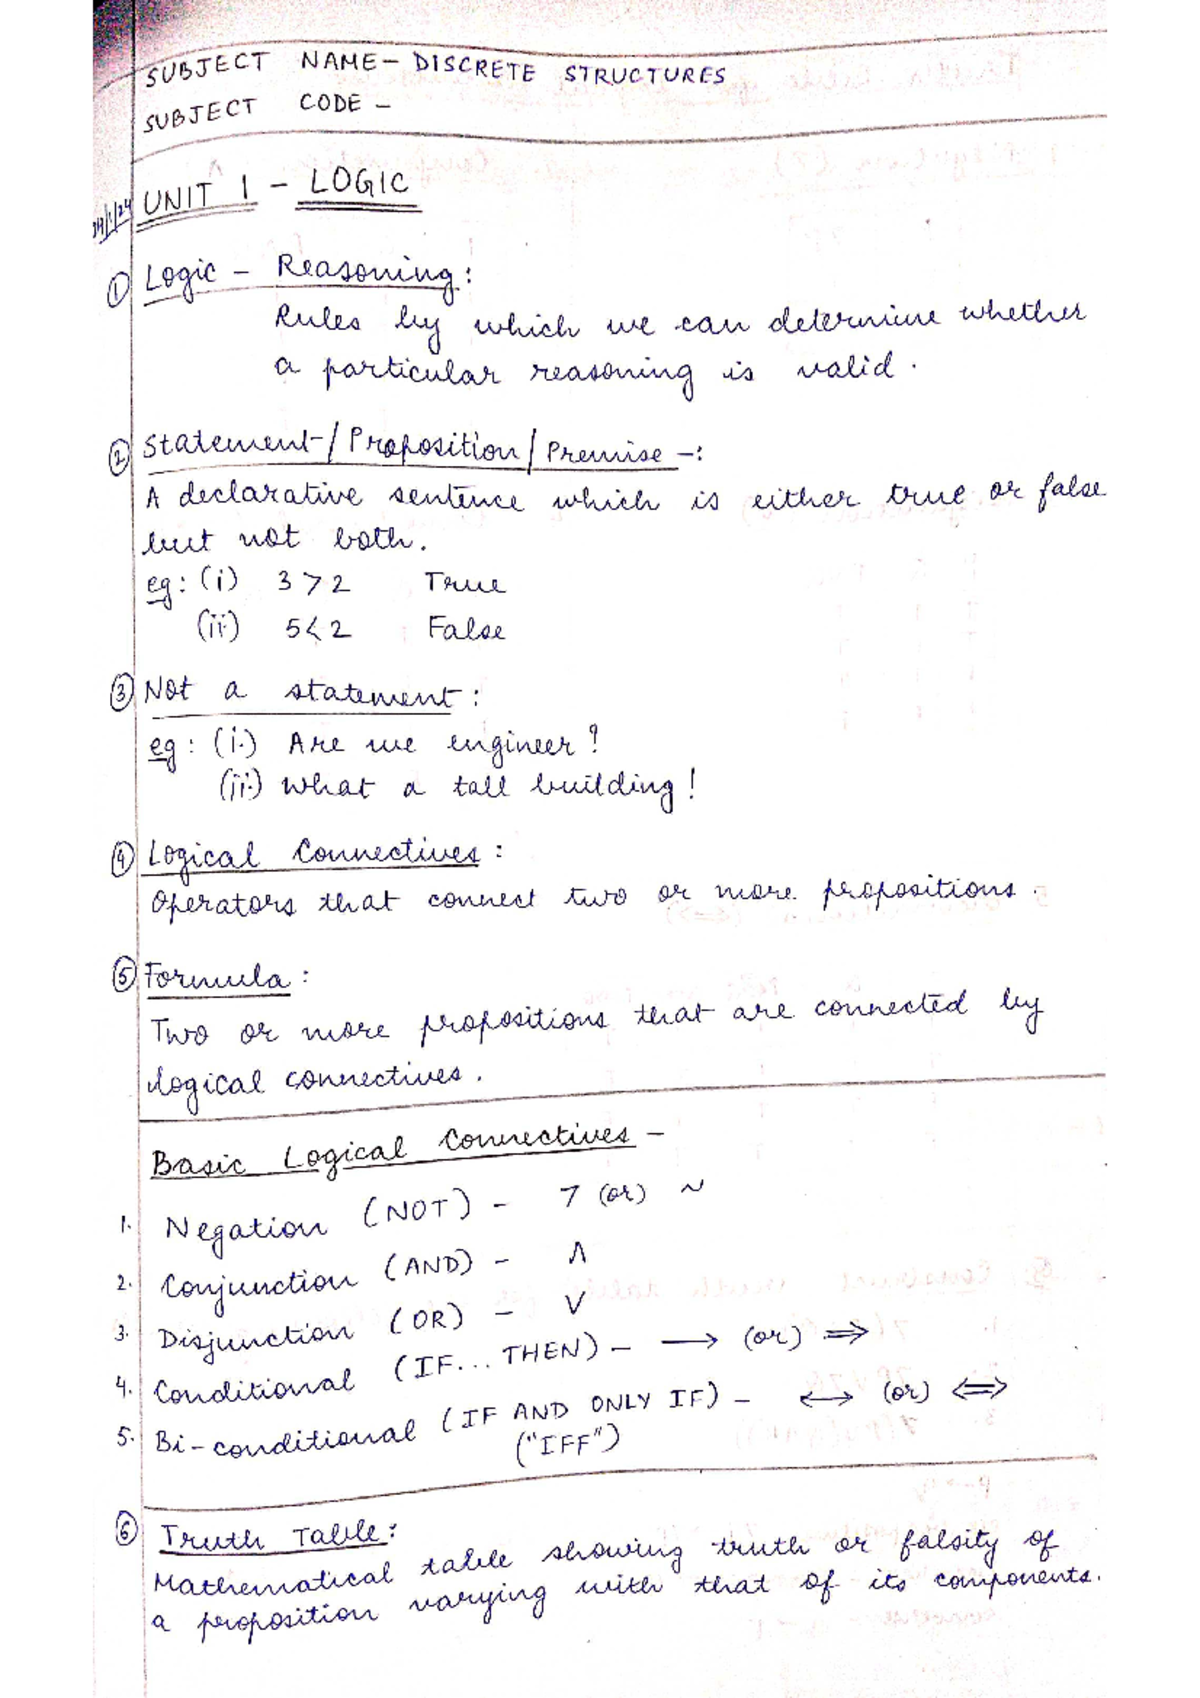 SUBJECT NAME - DISCRETE STRUCTURES
SUBJECT CODE -
UNIT 1 - LOGIC
① Logic - Reasoning:
Rules by which we can determine whether
a particular reasoning is valid.
② Statement/Proposition/Premise -:
A declarative sentence which is either true or false
but not both.
eg: (i) 3 > 2 True
(ii) 5 < 2 False
③ Not a statement:
eg: (i.) Are we engineer?
(ii.) What a tall building!
④ Logical Connectives:
Operators that connect two or more propositions.
⑤ Formula:
Two or more propositions that are connected by
logical connectives.
Basic Logical Connectives -
1. Negation (NOT) - ¬ (or) ~
2. Conjunction (AND) - ∧
3. Disjunction (OR) - ∨
4. Conditional (IF... THEN) - → (or) ⇒
5. Bi-conditional (IF AND ONLY IF) - ↔ (or) ⇔
("IFF")
⑥ Truth Table:
Mathematical table showing truth or falsity of
a proposition varying with that of its components.